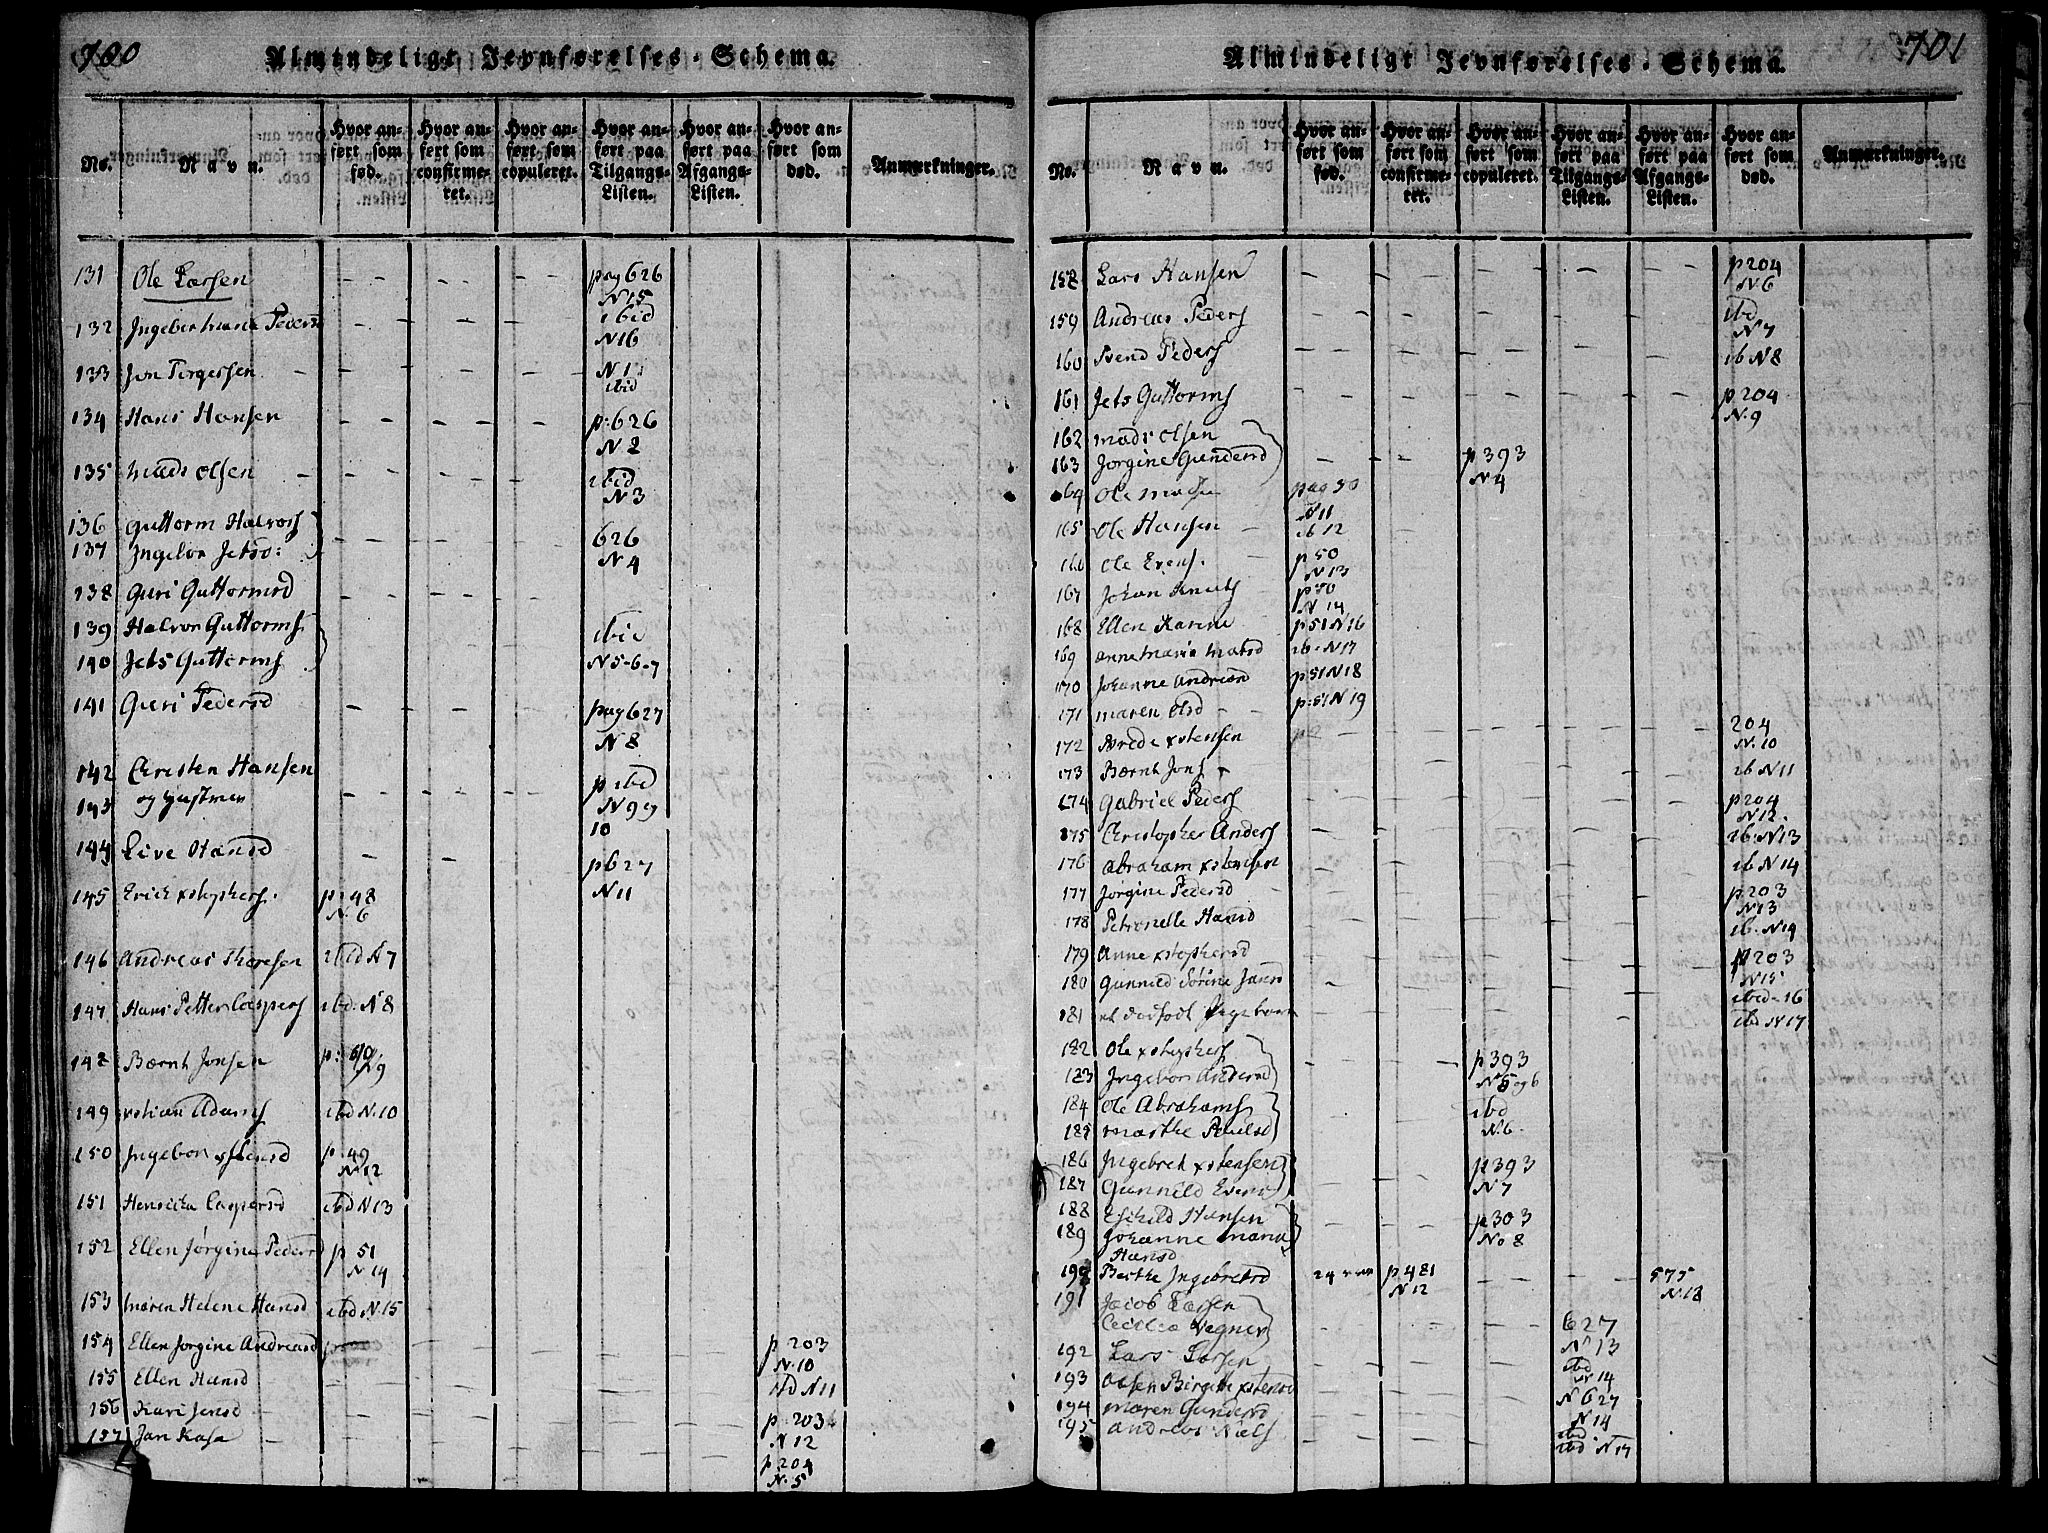 700
Almindeligt Jevnførelses-Schema.
No.
Navn.
Hvor anført som fød.
Hvor anført som confirmeret.
Hvor anført som copuleret.
Hvor anført paa Tilgangs-Listen.
Hvor anført paa Afgangs-Listen.
Hvor anført som død.
Anmærkninger.
131 Ole Larsen - - - pag 626 N 15
132 Pedersd - - - ibid N 16
133 Jon Torgersen - - - N 1 ibid
134 Hans Hansen - - - p: 626 N 2
135 Mads Olsen - - - ibid N 3
136 Guttorm Halvors
137 Ingebor - - - 626 N 4
138 Guri Guttormsd - - -
139 Halvor Guttorms ibid
140 Jets Guttorms N 5-6-7
141 Guri Pedersd - - - pag 627 N 8
142 Christen Hansen
143 og - - - p ibd N 9 10
144 Live Hansd - - p 627 N 11
145 Erich xstophers. p: 48 N. 6
146 Andreas Thoresen ibid N 7
147 Hans Petter Caspers ibd. N 8
148 Bærnt Jonsen N 9
149 xstian Adams ibd N. 10
150 Ingebor p. 49 N 12
151 Henricha Caspersd ibd N 13
152 Ellen Jørgine Pedersd p 51 N 14
153 Maren Helene Hansd ibd N. 15
154 Ellen Jorgine Andreasd p. 203 N. 10
155 Ellen Hansd - - - ibd N 11
156 Kari Jensd - - - p. 203 N 12
157 Jan Kasa - - - p. 204 N. 5
701
Almindeligt Jevnførelses-Schema.
No.
Navn.
Hvor anført som fød.
Hvor anført som confirmeret.
Hvor anført som copuleret.
Hvor anført paa Tilgangs-Listen.
Hvor anført paa Afgangs-Listen.
Hvor anført som død.
Anmærkninger.
158 Lars Hansen - - - - - p 204 N. 6
159 Andreas Peders - - - - - ibd N 7
160 Svend Peders - - - - - ib N 8
161 Jets Guttorms - - - - - p. 204 N. 9
162 Mads Olsen
163 Jorgine Gundersd - - p 393 N 4
164 Ole pag 50 N 11
165 Ole Hansen ib 12
166 Ole Evens. p. 50 N 13
167 Johan Knuts p 50 N 14
168 Ellen Karine p 51 N 16
169 Anne Marie Matsd ib. N 17
170 Johanne Andreasd p. 51 N 18
171 Maren Olsd p: 51 N 19
172 xstensen - - - - - 204 N. 10
173 Bærnt Jons ib N 11
174 Gabriel Peders - - - - - p 204 N 12.
175 Christopher Anders - - - - - ib. N 13
176 Abraham xstensen - - - - - ib N 14
177 Jørgine Pedersd - - - - - p 203 N 13
178 Petronelle Hansd - - - - - ib. N 14
179 Anne xstophersd - - - - - p 203 N 15
180 Gunnild Sørine Jansd - - - - - ibid - 16
181 et dødfødt - - - ibd N 17
182 Ole xstophers
183 Ingebor Andersd - - p 393 N 5 og 6
184 Ole Abrahams
185 Marthe Paulsd - - ibd N. 6
186 Ingebret xstensen
187 Gunnild Evens - - p 393 N 7
188 Eschild Hansen
189 Johanne Maria Hansd - - p 303 No 8
190 Berthe Ingebretsd 24 p 481 N 12 - - 575 N. 18
191 Jacob Larsen
Cecilia Wegner - - - 627 N 13
192 Lars Larsen - - - ibd N 14
193 Birgitte xstensd - - - N 627 N 14
194 Maren Gundersd - - - ibd
195 Andreas Niels - - - ibd N 17